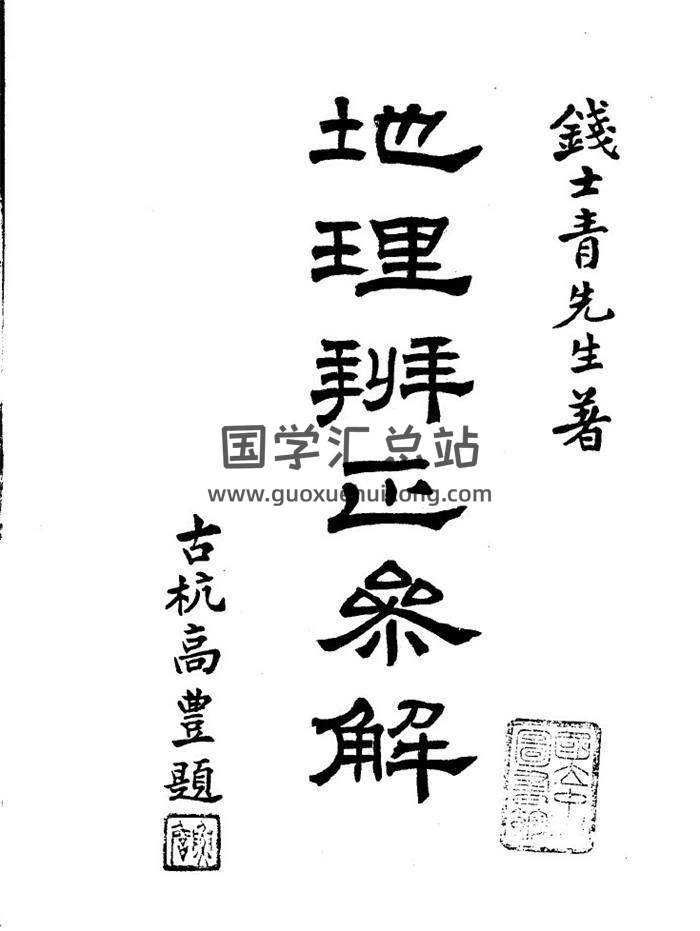 錢士青先生著
地理辨正參解
古杭高豐題
国学汇总站
www.guoxuehuizong.com